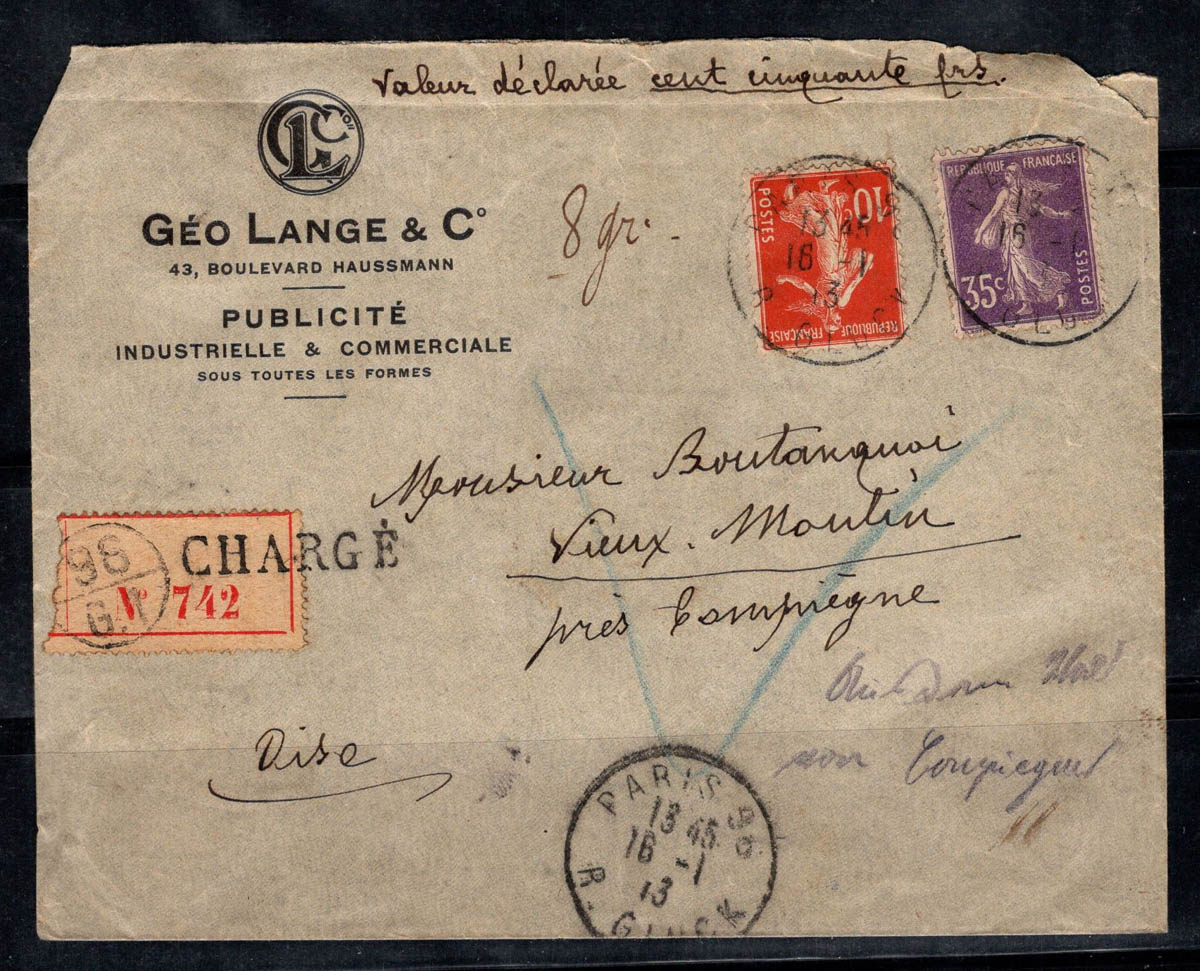 Valeur déclarée cent cinquante frs.
GLC
GÉO LANGE & Cº
43, BOULEVARD HAUSSMANN
PUBLICITÉ
INDUSTRIELLE & COMMERCIALE
SOUS TOUTES LES FORMES
8 gr.
10c
POSTES
REPUBLIQUE FRANÇAISE
13 45
16 -1
13
R. GLUCK
REPUBLIQUE FRANÇAISE
35c
POSTES
13
16 -1
GLUCK
Monsieur Boutanquoi
Vieux. Moulin
près Compiègne
Oise
96
G.1
CHARGÉ
Nº 742
non
PARIS 96
13 45
16 -1
13
R. GLUCK